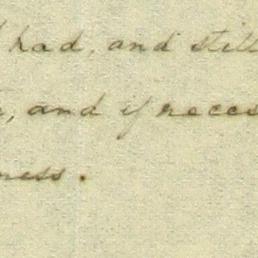 had, and still
, and if neces
ness.